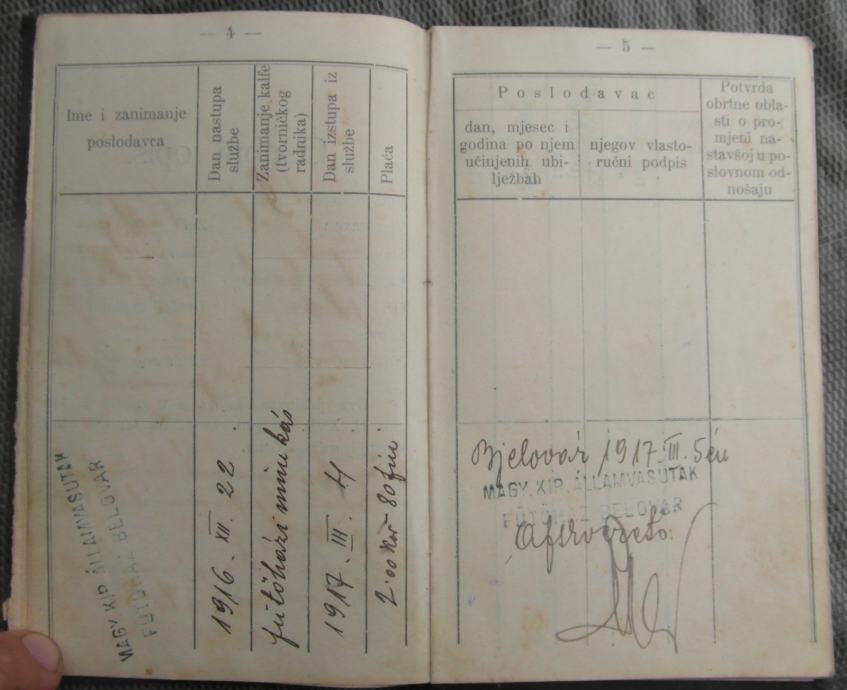 — 4 —
Ime i zanimanje
poslodavca
Dan nastupa
službe
Zanimanje kalfe
(tvorničkog
radnika)
Dan izstupa iz
službe
Plaća
MAGY. KIR. ÁLLAMVASUTAK
FŰTŐHÁZ BELOVAR
1916. XII. 22.
fűtőházi munkás
1917. III. 4
2·00 kor 80 fill
— 5 —
Poslodavac
dan, mjesec i
godina po njem
učinjenih ubi-
lježbah
njegov vlasto-
ručni podpis
Potvrda
obrtne obla-
sti o pro-
mjeni na-
stavšoj u po-
slovnom od-
nošaju
Bjelovár 1917. III. 5 én
MAGY. KIR. ÁLLAMVASUTAK
FŰTŐHÁZ BELOVAR